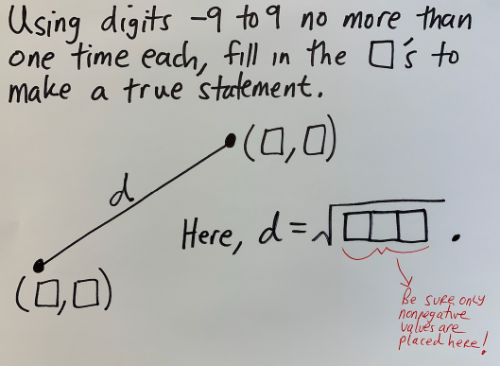 Using digits -9 to 9 no more than
one time each, fill in the □'s to
make a true statement.
(□,□)
d
Here, d=√□□□.
(□,□)
Be sure only
nonnegative
values are
placed here!